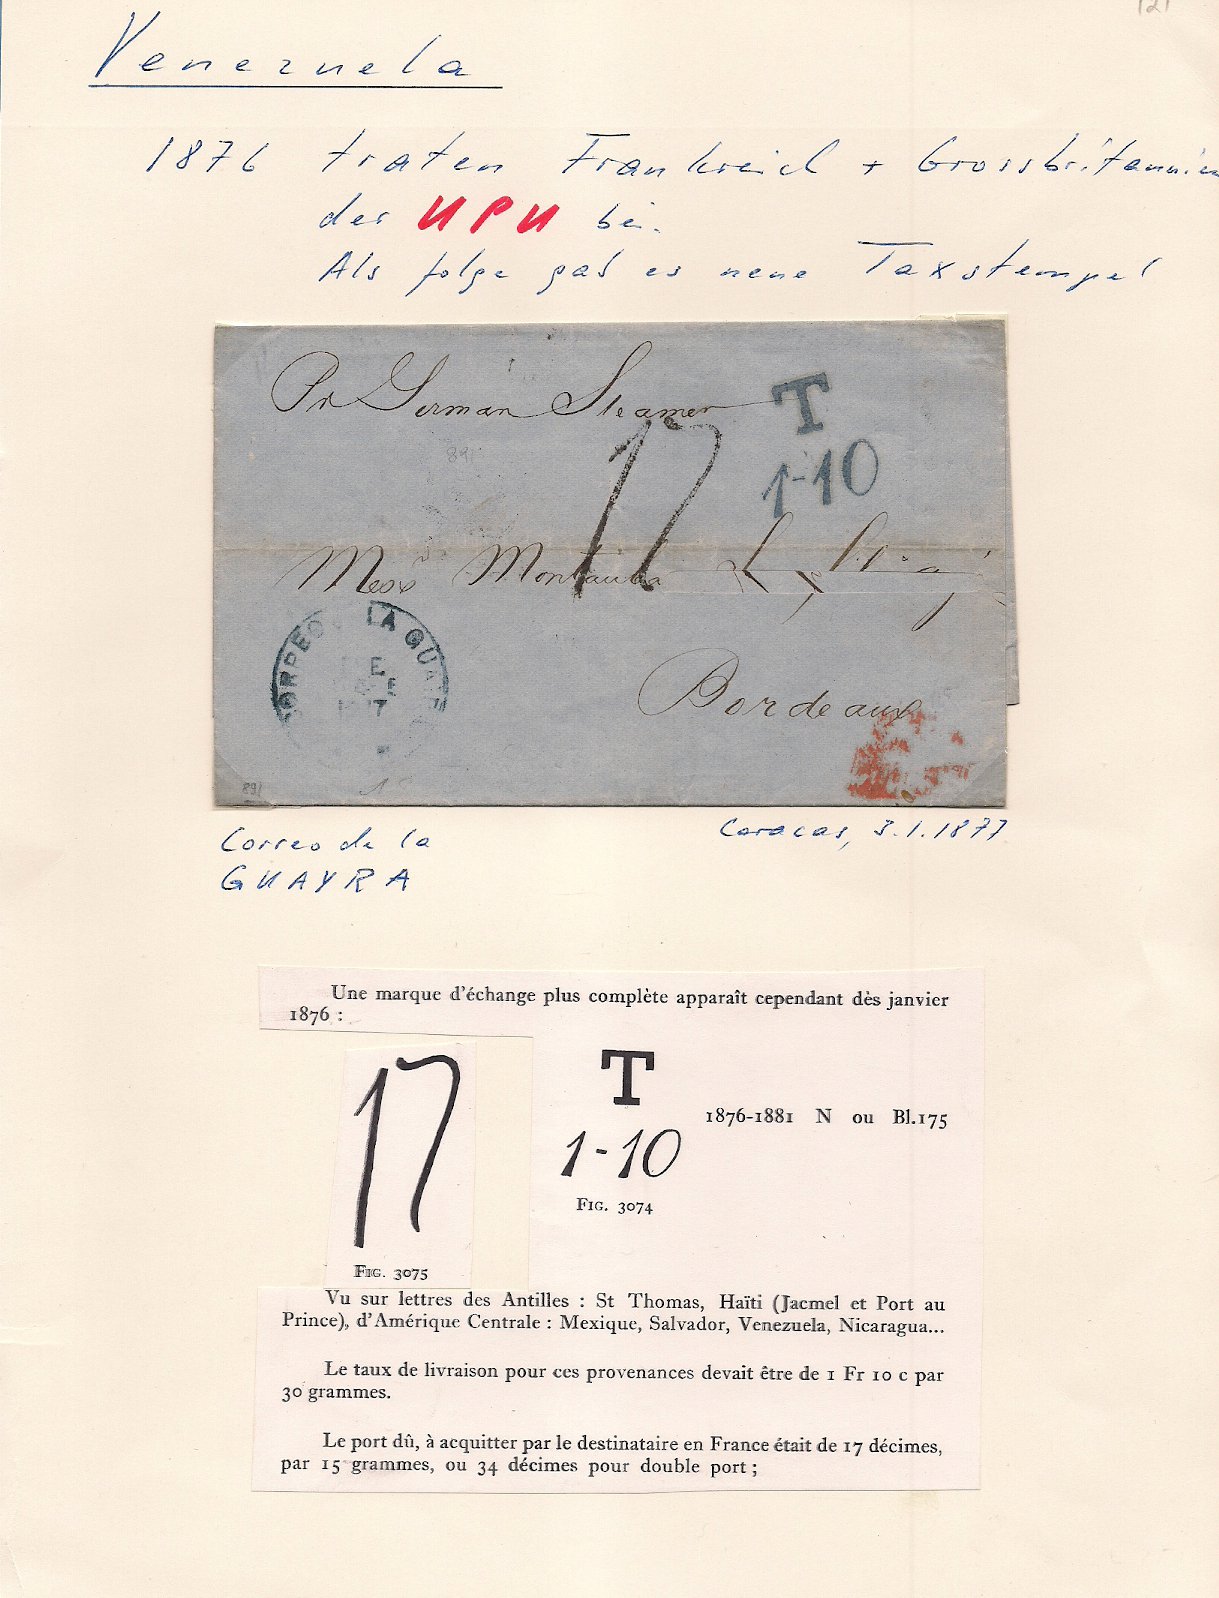 121
Venezuela
1876 traten Frankreich + Grossbritannien
der UPU bei.
Als folge gab es neue Taxstempel
Pr German Steamer
T
1-10
17
891
Mess
Bordeaux
CORREO LA GUAYR
891
Correo de la
GUAYRA
Caracas, 3.1.1877
Une marque d'échange plus complète apparaît cependant dès janvier
1876 :
17
FIG. 3075
T
1-10
FIG. 3074
1876-1881 N ou Bl.175
Vu sur lettres des Antilles : St Thomas, Haïti (Jacmel et Port au
Prince), d'Amérique Centrale : Mexique, Salvador, Venezuela, Nicaragua...
Le taux de livraison pour ces provenances devait être de 1 Fr 10 c par
30 grammes.
Le port dû, à acquitter par le destinataire en France était de 17 décimes,
par 15 grammes, ou 34 décimes pour double port ;